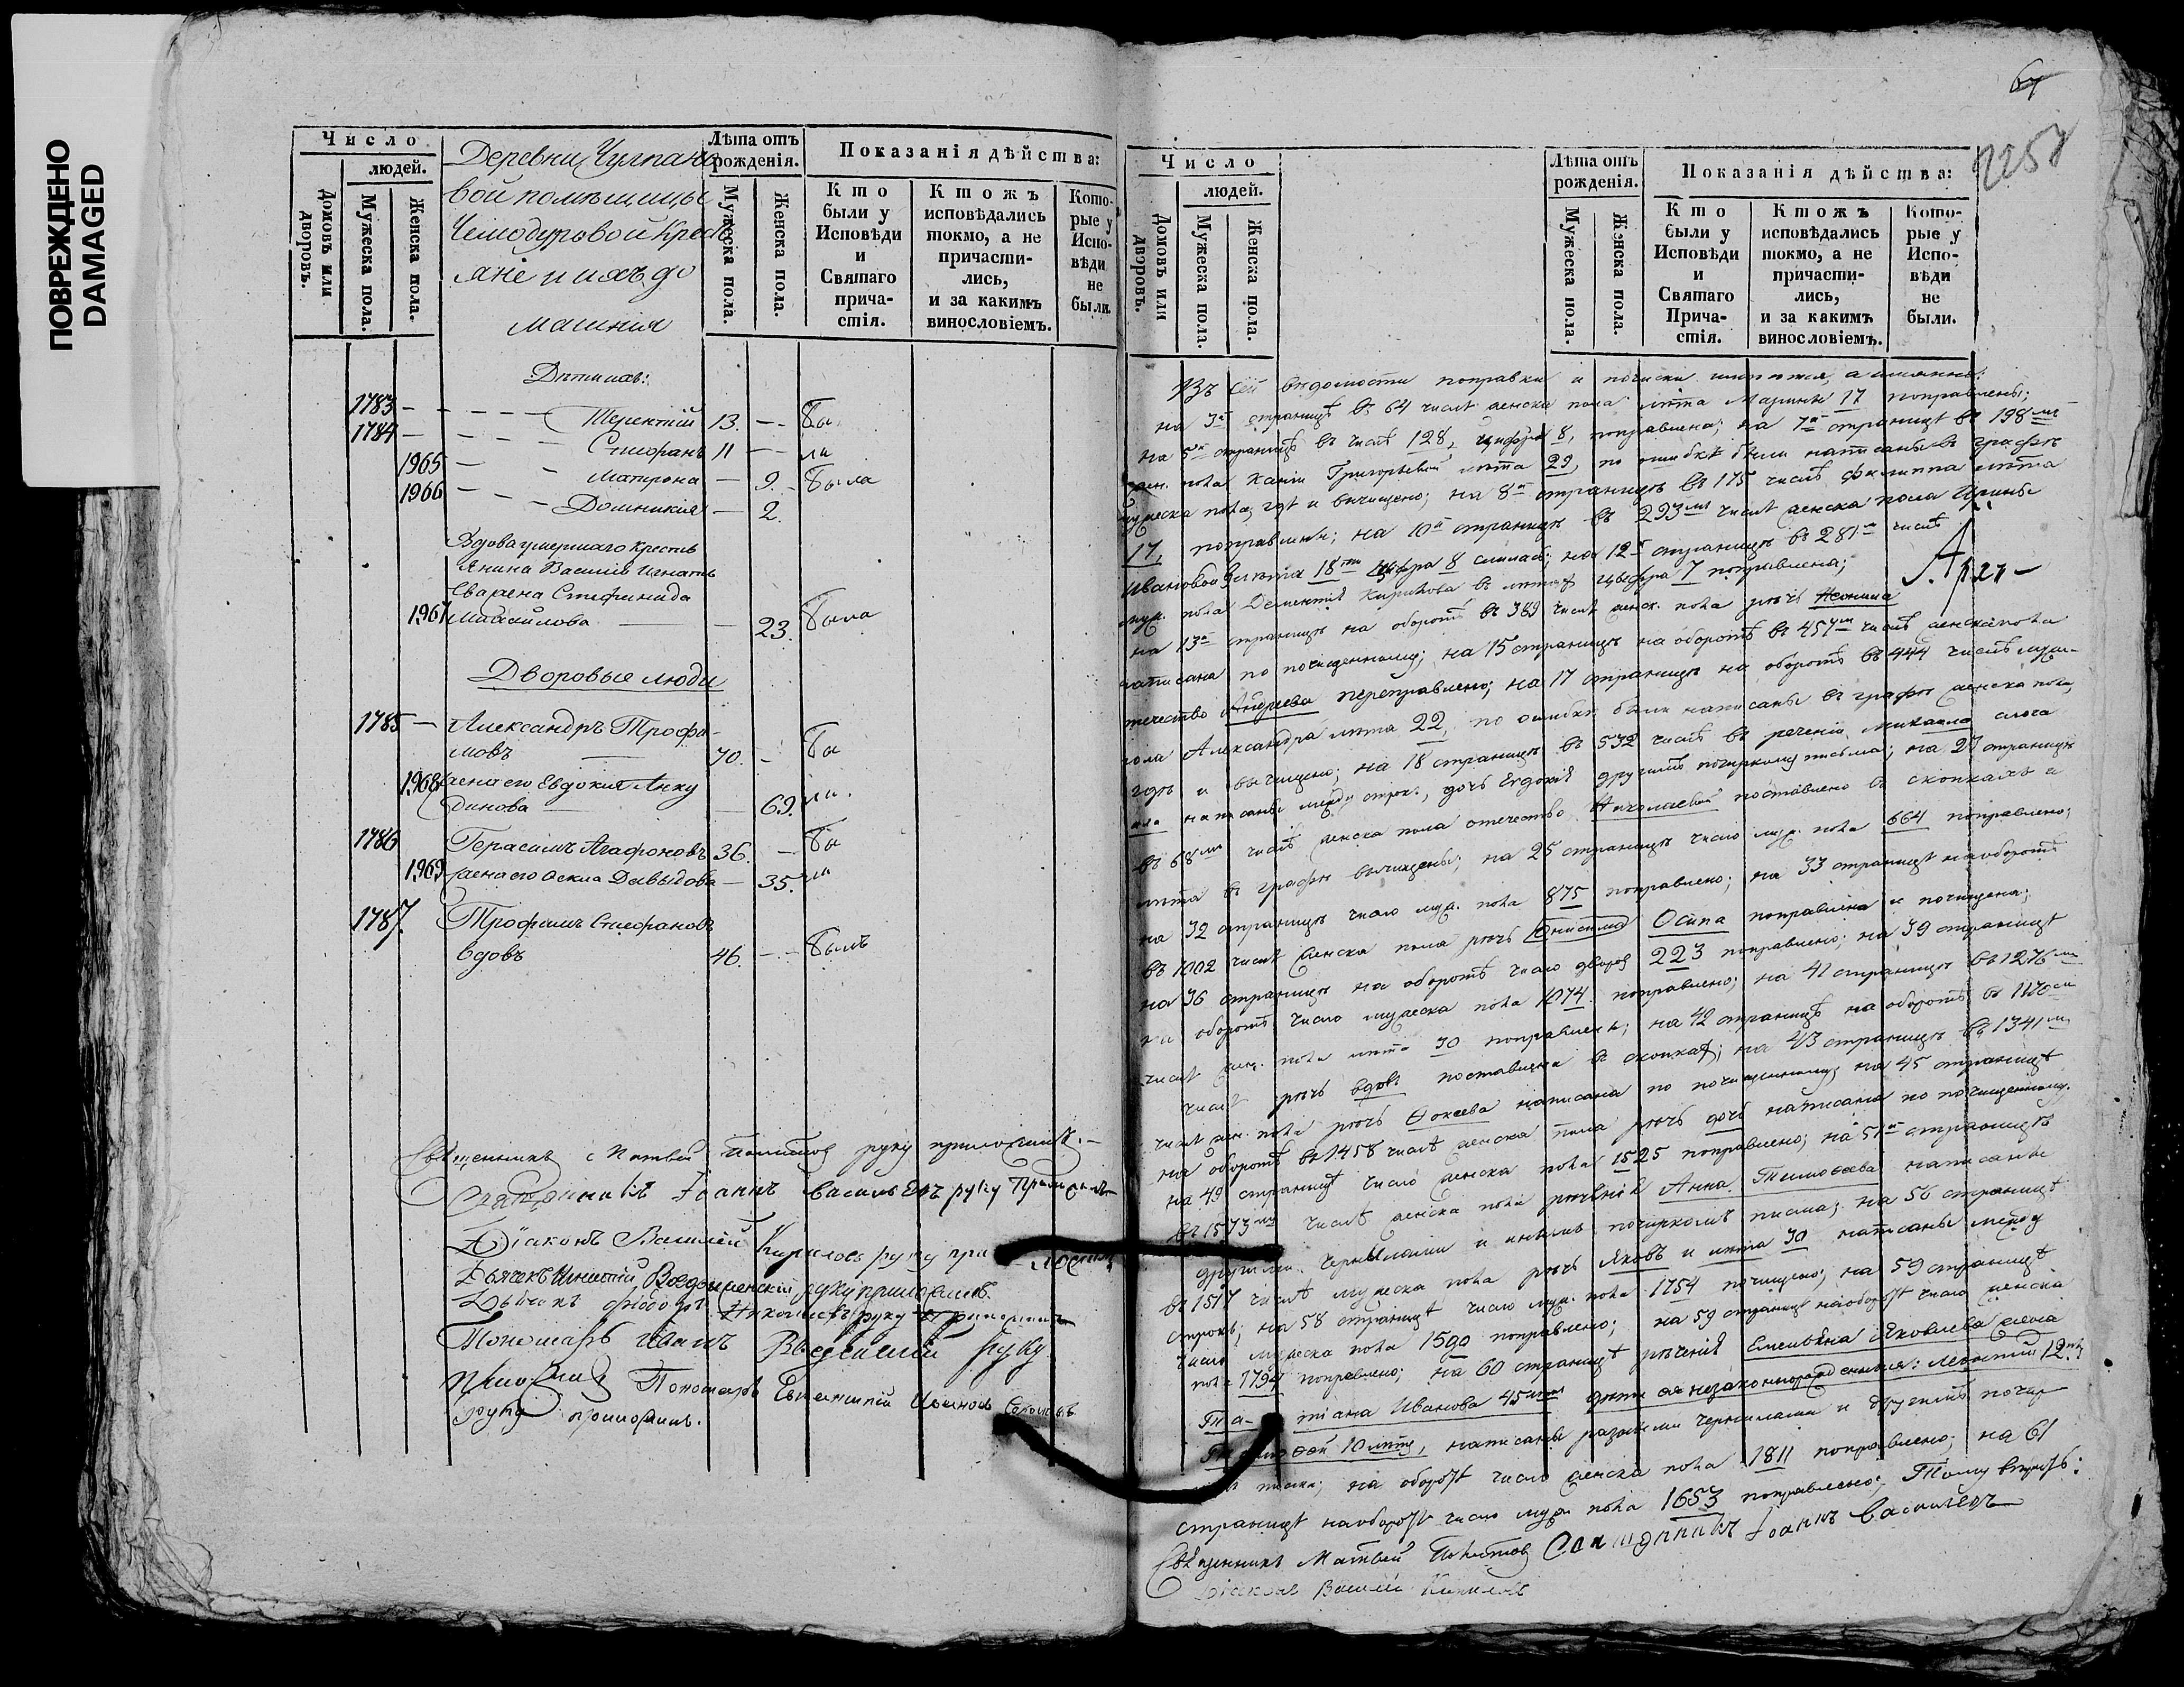 ПОВРЕЖДЕНО
DAMAGED
Число
людей.
Домовъ или дворовъ.
Мужеска пола.
Женска пола.
Деревни Чулпано
вой помѣщицы
Чемодуровой Кресть
яне и ихъ до
машнія
Лѣта отъ рожденія.
Мужеска пола.
Женска пола.
Показанія дѣйства:
Кто были у Исповѣди и Святаго причастія.
Ктожъ исповѣдались токмо, а не причастились, и за какимъ винословіемъ.
Которые у Исповѣди не были.
Дѣти ихъ:
1783 — Терентій 13. — Бы
1784 — Стефанъ 11 — ли
1965 — Матрона — 9. Была
1966 — Домникія — 2.
Вдова умершаго кресть
янина Василія Игнать
ева жена Степанида
1967 Михайлова — 23. Была
Дворовые люди
1785 — Александръ Трофи-
мовъ 70. — Бы
1968 жена его Евдокия Анку
динова — 69. ли.
1786 Герасимъ Агафоновъ 36. — Бы
1969 жена его Давыдова — 35. ли
1787. Трофимъ Стефановъ
вдовъ 46. — Былъ
Священникъ Матвей руку приложилъ. —
Священникъ Іоаннъ Васильевъ руку Приложилъ
Діаконъ Василей Кириловъ руку при ложилъ
Дьячекъ Воздвиженскій руку приложилъ.
Дьячекъ Николаевъ руку приложилъ
Пономарь Иванъ Введенский руку
приложилъ Пономарь Евгенптій Ивановъ
руку приложилъ.
64
Число
людей.
Домовъ или дворовъ.
Мужеска пола.
Женска пола.
Лѣта отъ рожденія.
Мужеска пола.
Женска пола.
Показанія дѣйства:
Кто были у Исповѣди и Святаго Причастія.
Ктожъ исповѣдались токмо, а не причастились, и за какимъ винословіемъ.
Которые у Исповѣди не были.
Въ сей вѣдомости поправки и почистки имѣются, а именно:
на 3й страницѣ въ 64 числѣ женска пола лѣта Марины 17 поправлены;
на 5й страницѣ въ числѣ 128, цыфра 8, поправлена; на 7й страницѣ въ 198мъ
жен. пола Григорьевой лѣта 29, по ошибкѣ были написаны въ графѣ
мужеска пола, гдѣ и вычищено; на 8й страницѣ въ 175 числѣ Филиппа лѣта
17, поправлены; на 10й страницѣ въ 293мъ числѣ женска пола Ирины
Ивановой лѣта 18ти цыфра 8 ; на 12й страницѣ въ 281м числѣ
муж. пола Дементія Кирилова въ лѣтахъ цыфра 7 поправлена;
на 13й страницѣ на оборотѣ въ 389 числѣ женск. пола рѣчь
написана по почищенному; на 15 страницѣ на оборотѣ въ 457м числѣ женска пола
отечество Андреева переправлено; на 17 страницѣ на оборотѣ въ 444 числѣ муж-
пола Александра лѣта 22, по ошибкѣ были написаны въ графѣ женска пола,
гдѣ и вычищено; на 18 страницѣ въ 532 числѣ въ реченіи Михаила слога
написаны между строк., дочь Евдокія другимъ почеркомъ письма; на 21 страницѣ
въ 68мъ числѣ женска пола отечество Николаевой поставлено въ скопкахъ и
лѣта въ графѣ вычищены; на 25 страницѣ число муж. пола 664 поправлено;
на 32 страницѣ число муж. пола 875 поправлено; на 33 страницѣ на оборотѣ
въ 1002 числѣ женска пола рѣчь Осипа поправлена и почищена;
на 36 страницѣ на оборотѣ число дворов 223 поправлено; на 39 страницѣ
на оборотѣ число мужеска пола 1074 поправлено; на 41 страницѣ въ 1276мъ
числѣ жен. пола лѣта 30 поправлены; на 42 страницѣ на оборотѣ въ 1170м
числѣ рѣчь вдовъ поставлена в скопкахъ; на 43 страницѣ въ 1341м
числѣ жен. пола рѣчь Фокеева написана по почищенному; на 45 страницѣ
на оборотѣ въ 1458 числѣ женска пола рѣчь дочь написана по почищенному.
на 49 страницѣ число женска пола 1525 поправлено; на 51й страницѣ
въ 1573мъ числѣ женска пола реченія Анна Тимофеева написаны
другими чернилами и инымъ почеркомъ писма; на 56 страницѣ
въ 1517 числѣ мужеска пола рѣчь Яковъ и лѣта 30 написаны между
строкъ; на 58 страницѣ число муж. пола 1754 почищено; на 59 страницѣ
число мужеска пола 1590 поправлено; на 59 страницѣ на оборотѣ число женска
пола 1794 поправлено; на 60 страницѣ реченія Емельяна Яковлева жена
Та- тіана Иванова 45 дѣти ея незаконнорожденныя: Леонтій 12
10 лѣтъ, написаны разными чернилами и другимъ почер-
комъ писма; на оборотѣ число женска пола 1811 поправлено; на 61
страницѣ на оборотѣ число муж. пола 1653 поправлено;
Священникъ Матвей Священникъ Іоаннъ Васильевъ
Діаконъ Василей Кириловъ